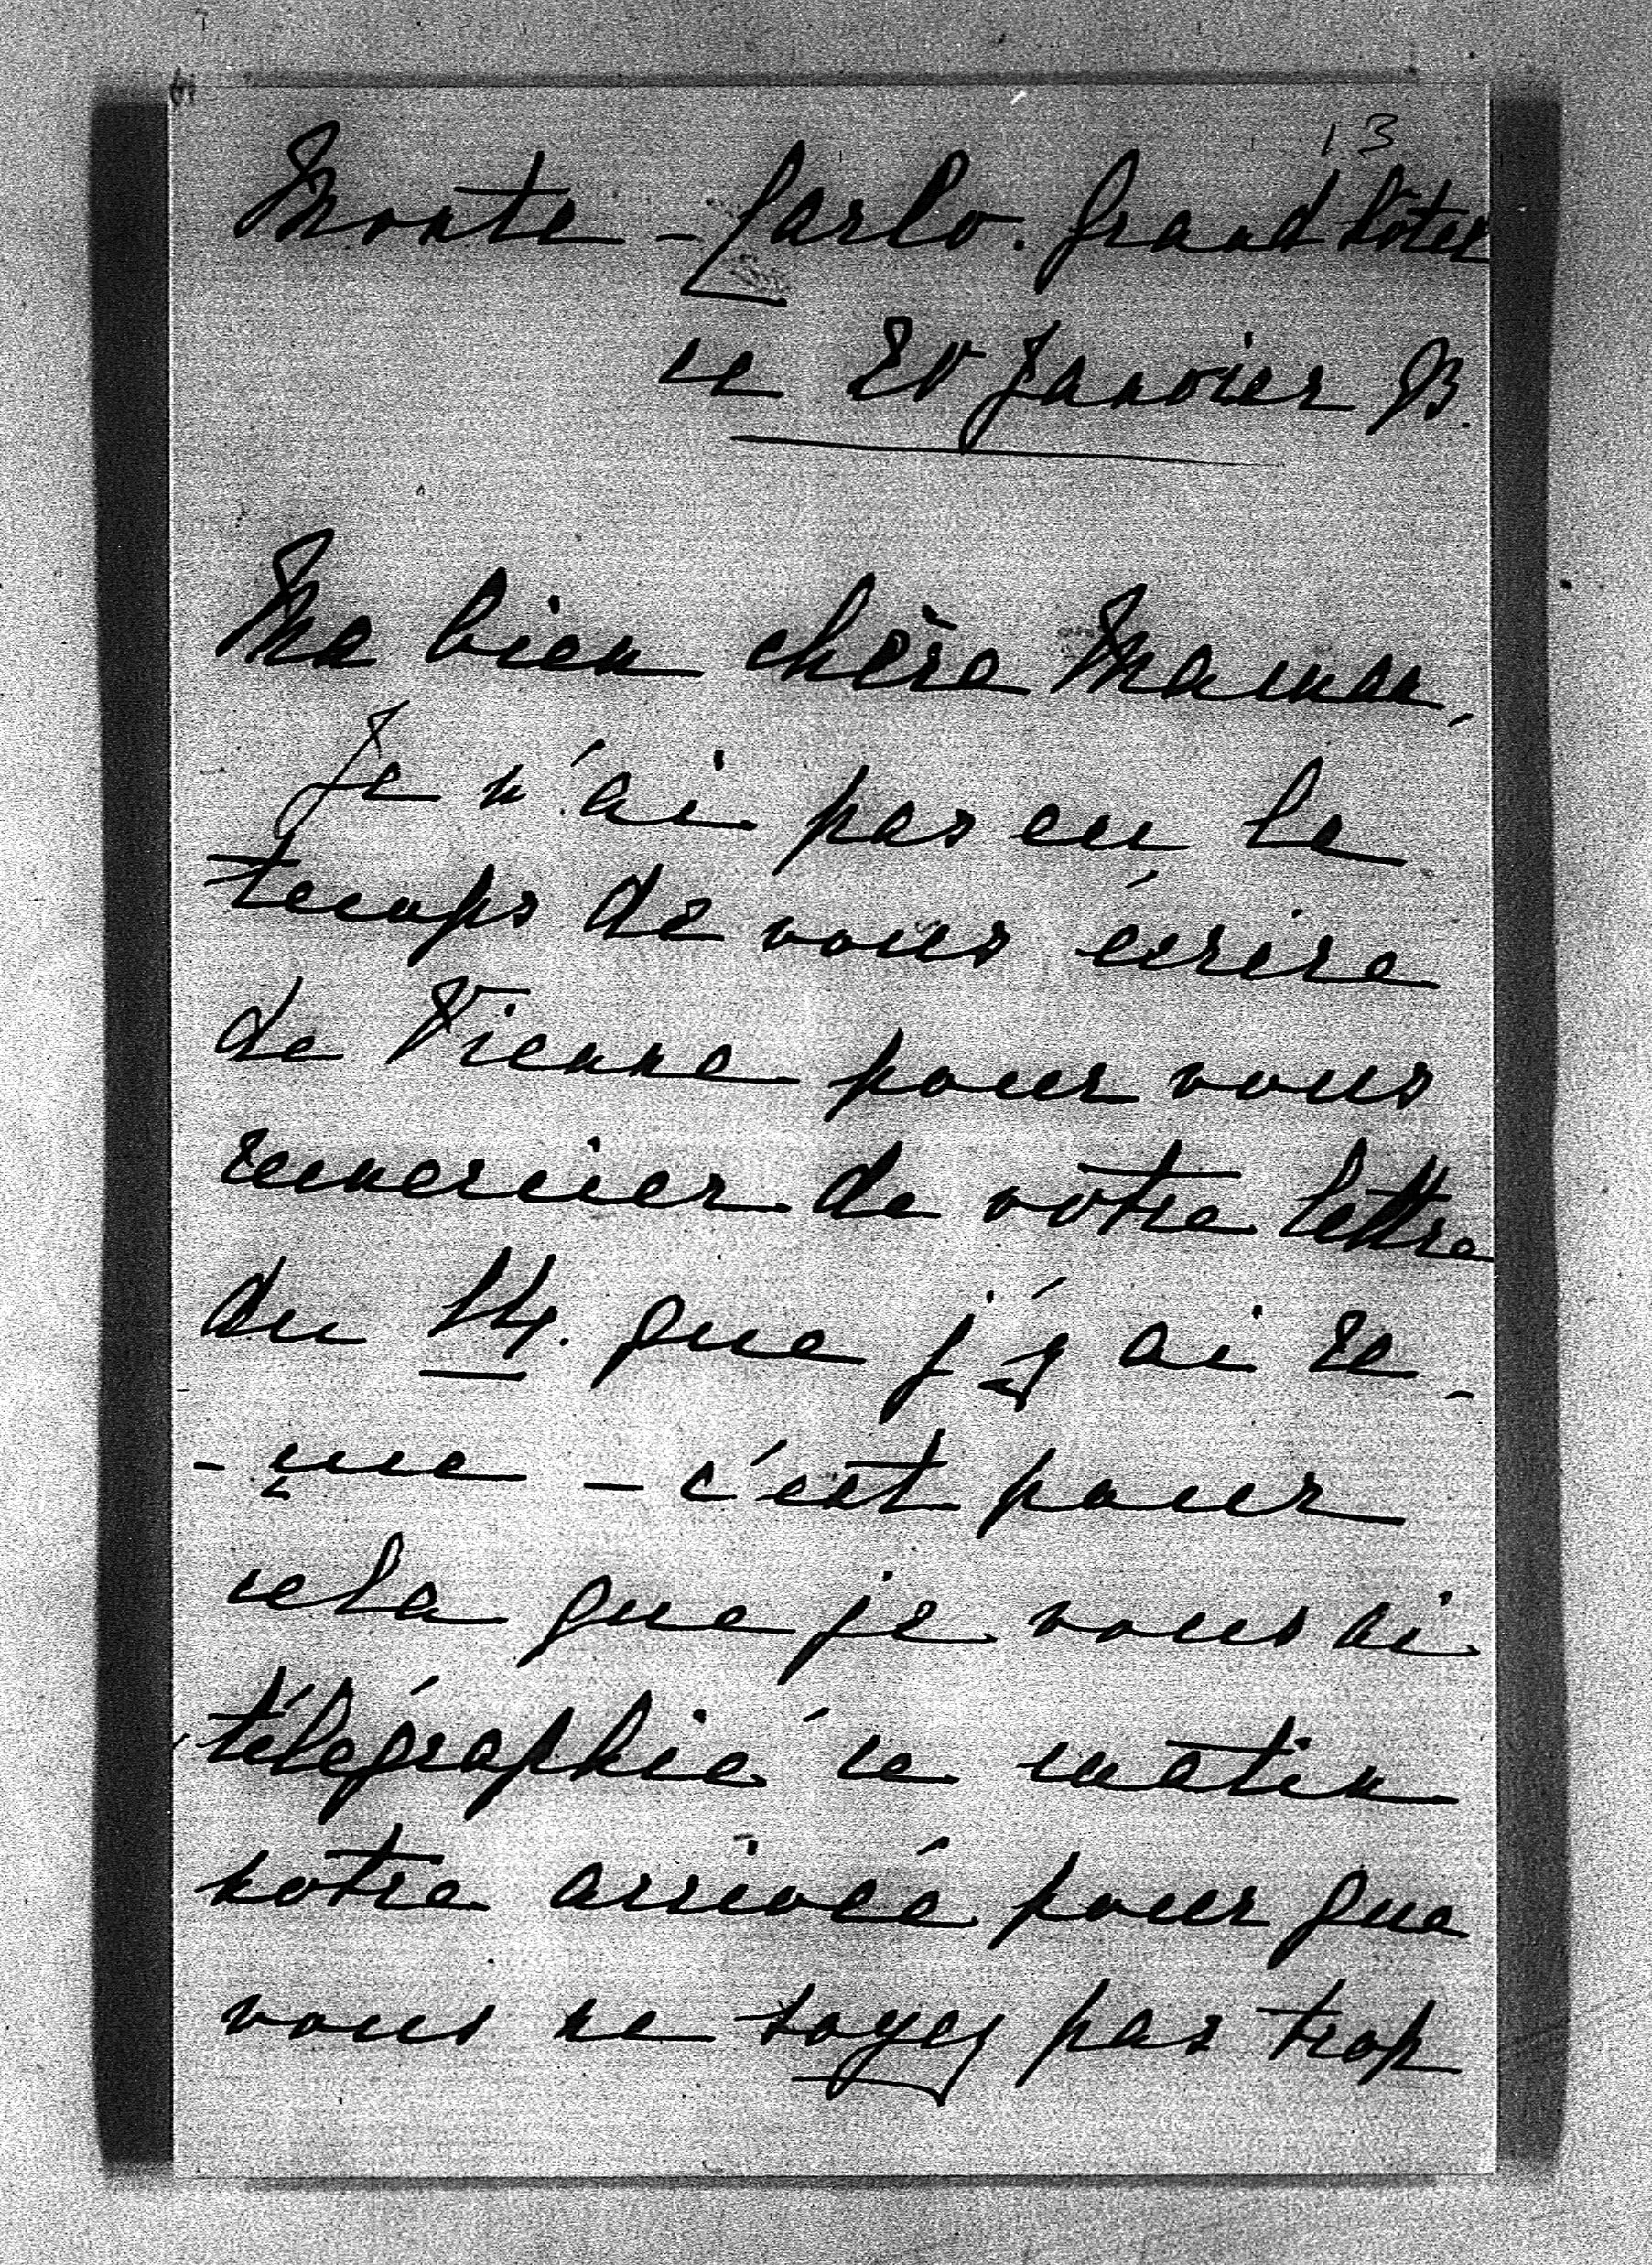 13
Monte-Carlo. Grand hôtel
ce 20 Janvier 93.
Ma bien chère Maman,
Je n'ai pas eu le
temps de vous écrire
de Vienne pour vous
remercier de votre lettre
du 14. que j'y ai re-
-çue - c'est pour
cela que je vous ai
télégraphié ce matin
notre arrivée pour que
vous ne soyez pas trop